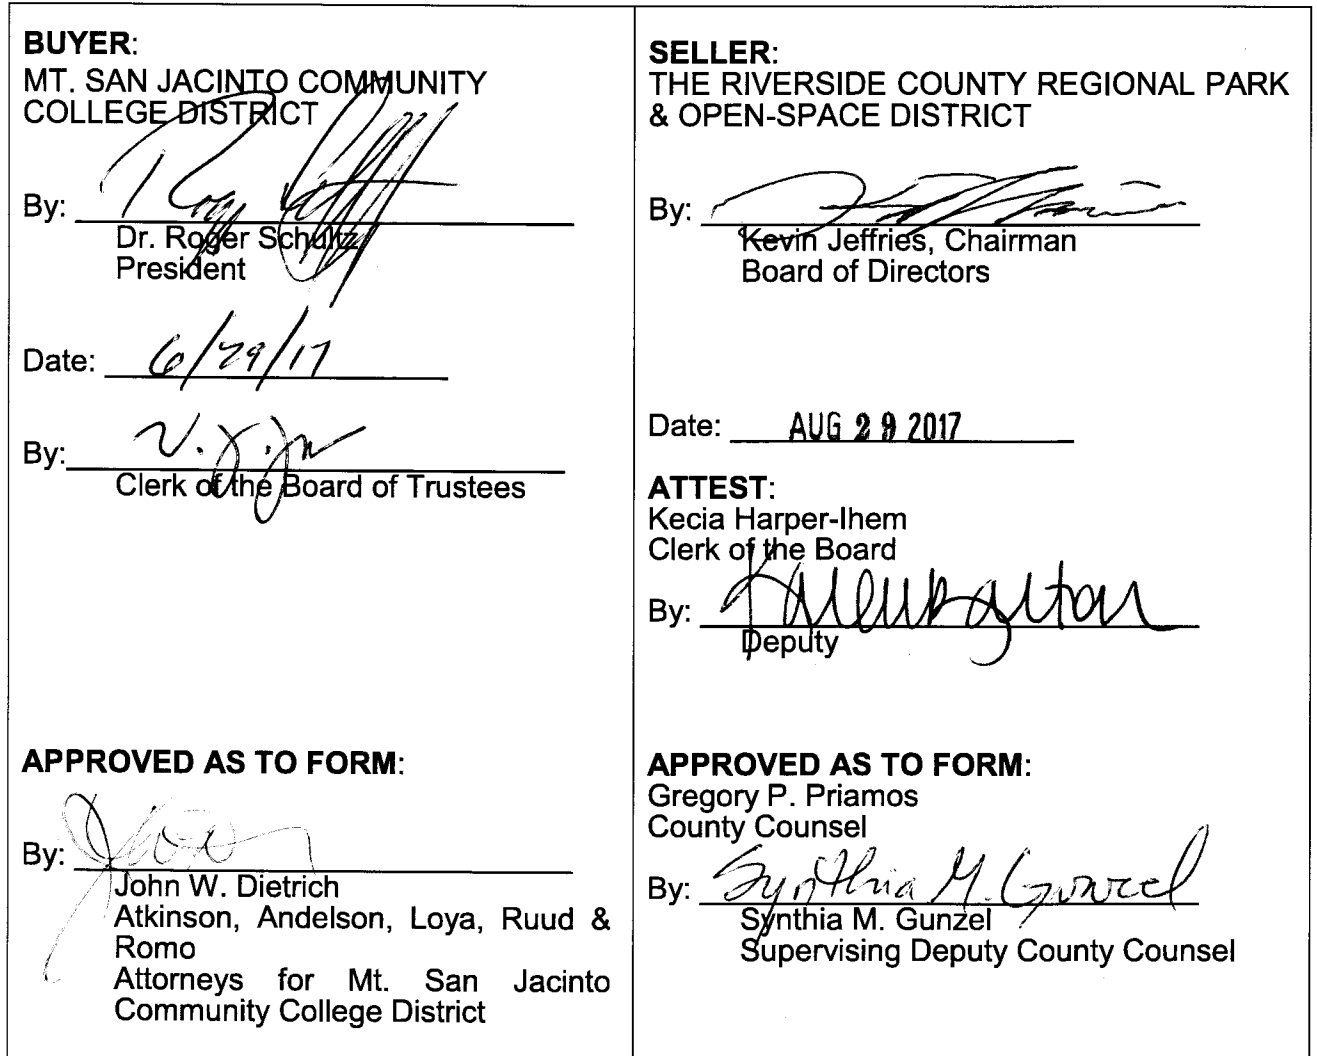 BUYER:
MT. SAN JACINTO COMMUNITY
COLLEGE DISTRICT
By:
Dr. Roger Schultz
President
Date: 6/29/17
By:
Clerk of the Board of Trustees
APPROVED AS TO FORM:
By:
John W. Dietrich
Atkinson, Andelson, Loya, Ruud &
Romo
Attorneys for Mt. San Jacinto
Community College District
SELLER:
THE RIVERSIDE COUNTY REGIONAL PARK
& OPEN-SPACE DISTRICT
By:
Kevin Jeffries, Chairman
Board of Directors
Date: AUG 29 2017
ATTEST:
Kecia Harper-Ihem
Clerk of the Board
By:
Deputy
APPROVED AS TO FORM:
Gregory P. Priamos
County Counsel
By: Synthia M. Gunzel
Synthia M. Gunzel
Supervising Deputy County Counsel